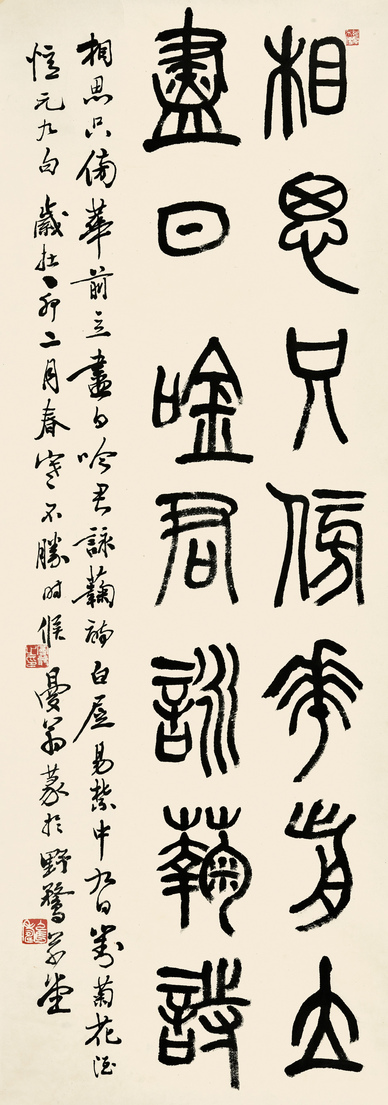 相思只傍花前立
盡日唫君詠蘜詩
相思只傍華前立盡日吟君詠蘜詩白居易禁中九日對菊花酒
憶元九句歲在卯二月春寒不勝時候曼翁篆於野鶩草堂